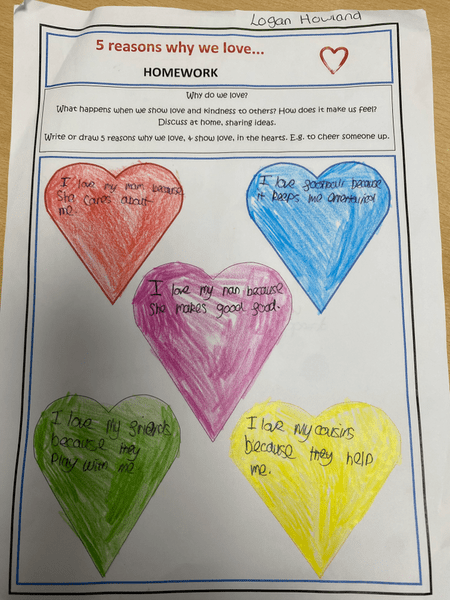 Logan Howland
5 reasons why we love...
HOMEWORK
Why do we love?
What happens when we show love and kindness to others? How does it make us feel?
Discuss at home, sharing ideas.
Write or draw 5 reasons why we love, & show love, in the hearts. E.g. to cheer someone up.
I love my mam because
She cares about
me.
I love football because
it keeps me entertained
I love my nan because
She makes good food.
I love my friends
because they
play with me
I love my cousins
because they help
me.